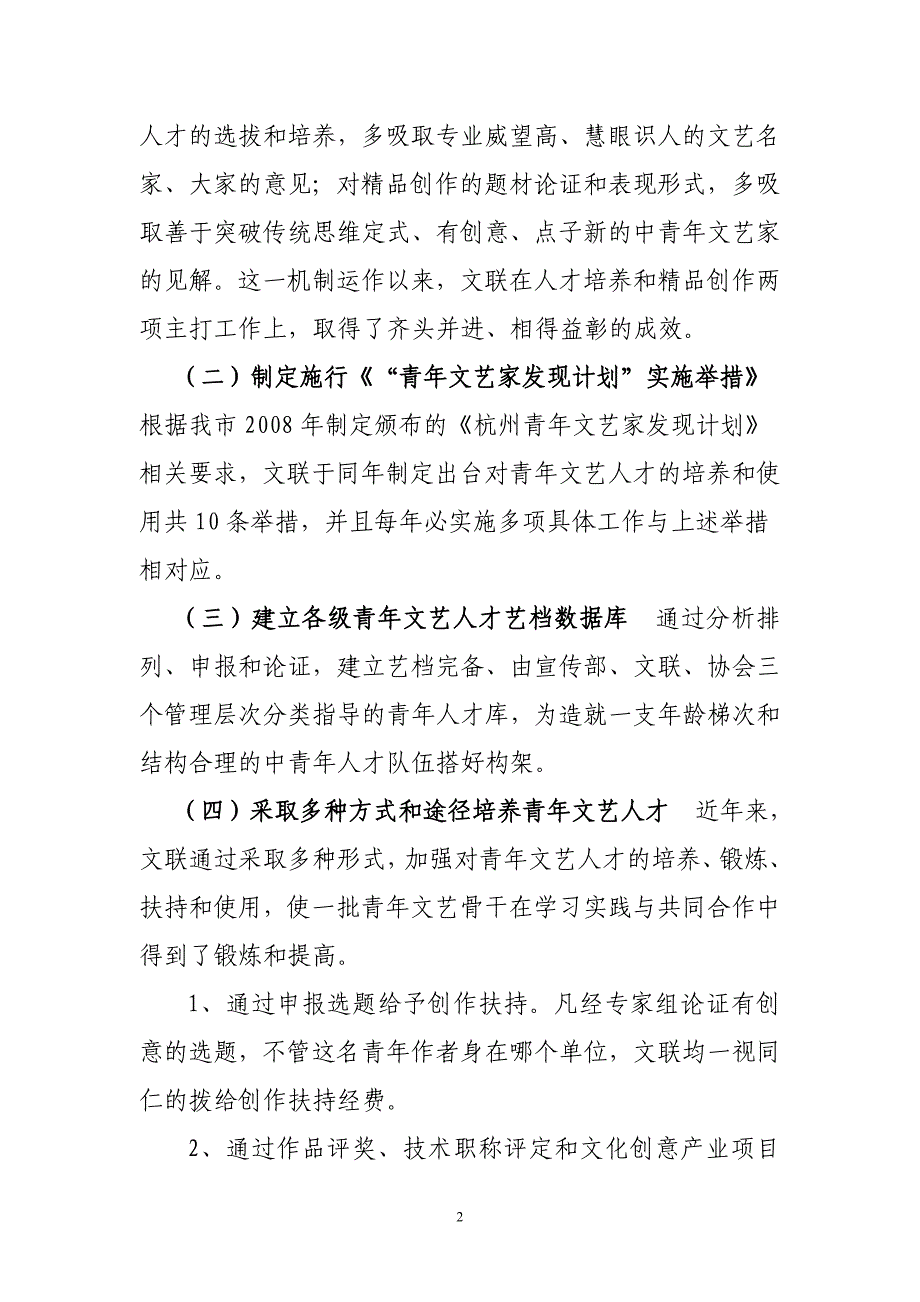 人才的选拔和培养，多吸取专业威望高、慧眼识人的文艺名
家、大家的意见；对精品创作的题材论证和表现形式，多吸
取善于突破传统思维定式、有创意、点子新的中青年文艺家
的见解。这一机制运作以来，文联在人才培养和精品创作两
项主打工作上，取得了齐头并进、相得益彰的成效。
（二）制定施行《“青年文艺家发现计划”实施举措》
根据我市 2008 年制定颁布的《杭州青年文艺家发现计划》
相关要求，文联于同年制定出台对青年文艺人才的培养和使
用共 10 条举措，并且每年必实施多项具体工作与上述举措
相对应。
（三）建立各级青年文艺人才艺档数据库　通过分析排
列、申报和论证，建立艺档完备、由宣传部、文联、协会三
个管理层次分类指导的青年人才库，为造就一支年龄梯次和
结构合理的中青年人才队伍搭好构架。
（四）采取多种方式和途径培养青年文艺人才　近年来，
文联通过采取多种形式，加强对青年文艺人才的培养、锻炼、
扶持和使用，使一批青年文艺骨干在学习实践与共同合作中
得到了锻炼和提高。
1、通过申报选题给予创作扶持。凡经专家组论证有创
意的选题，不管这名青年作者身在哪个单位，文联均一视同
仁的拨给创作扶持经费。
2、通过作品评奖、技术职称评定和文化创意产业项目
2